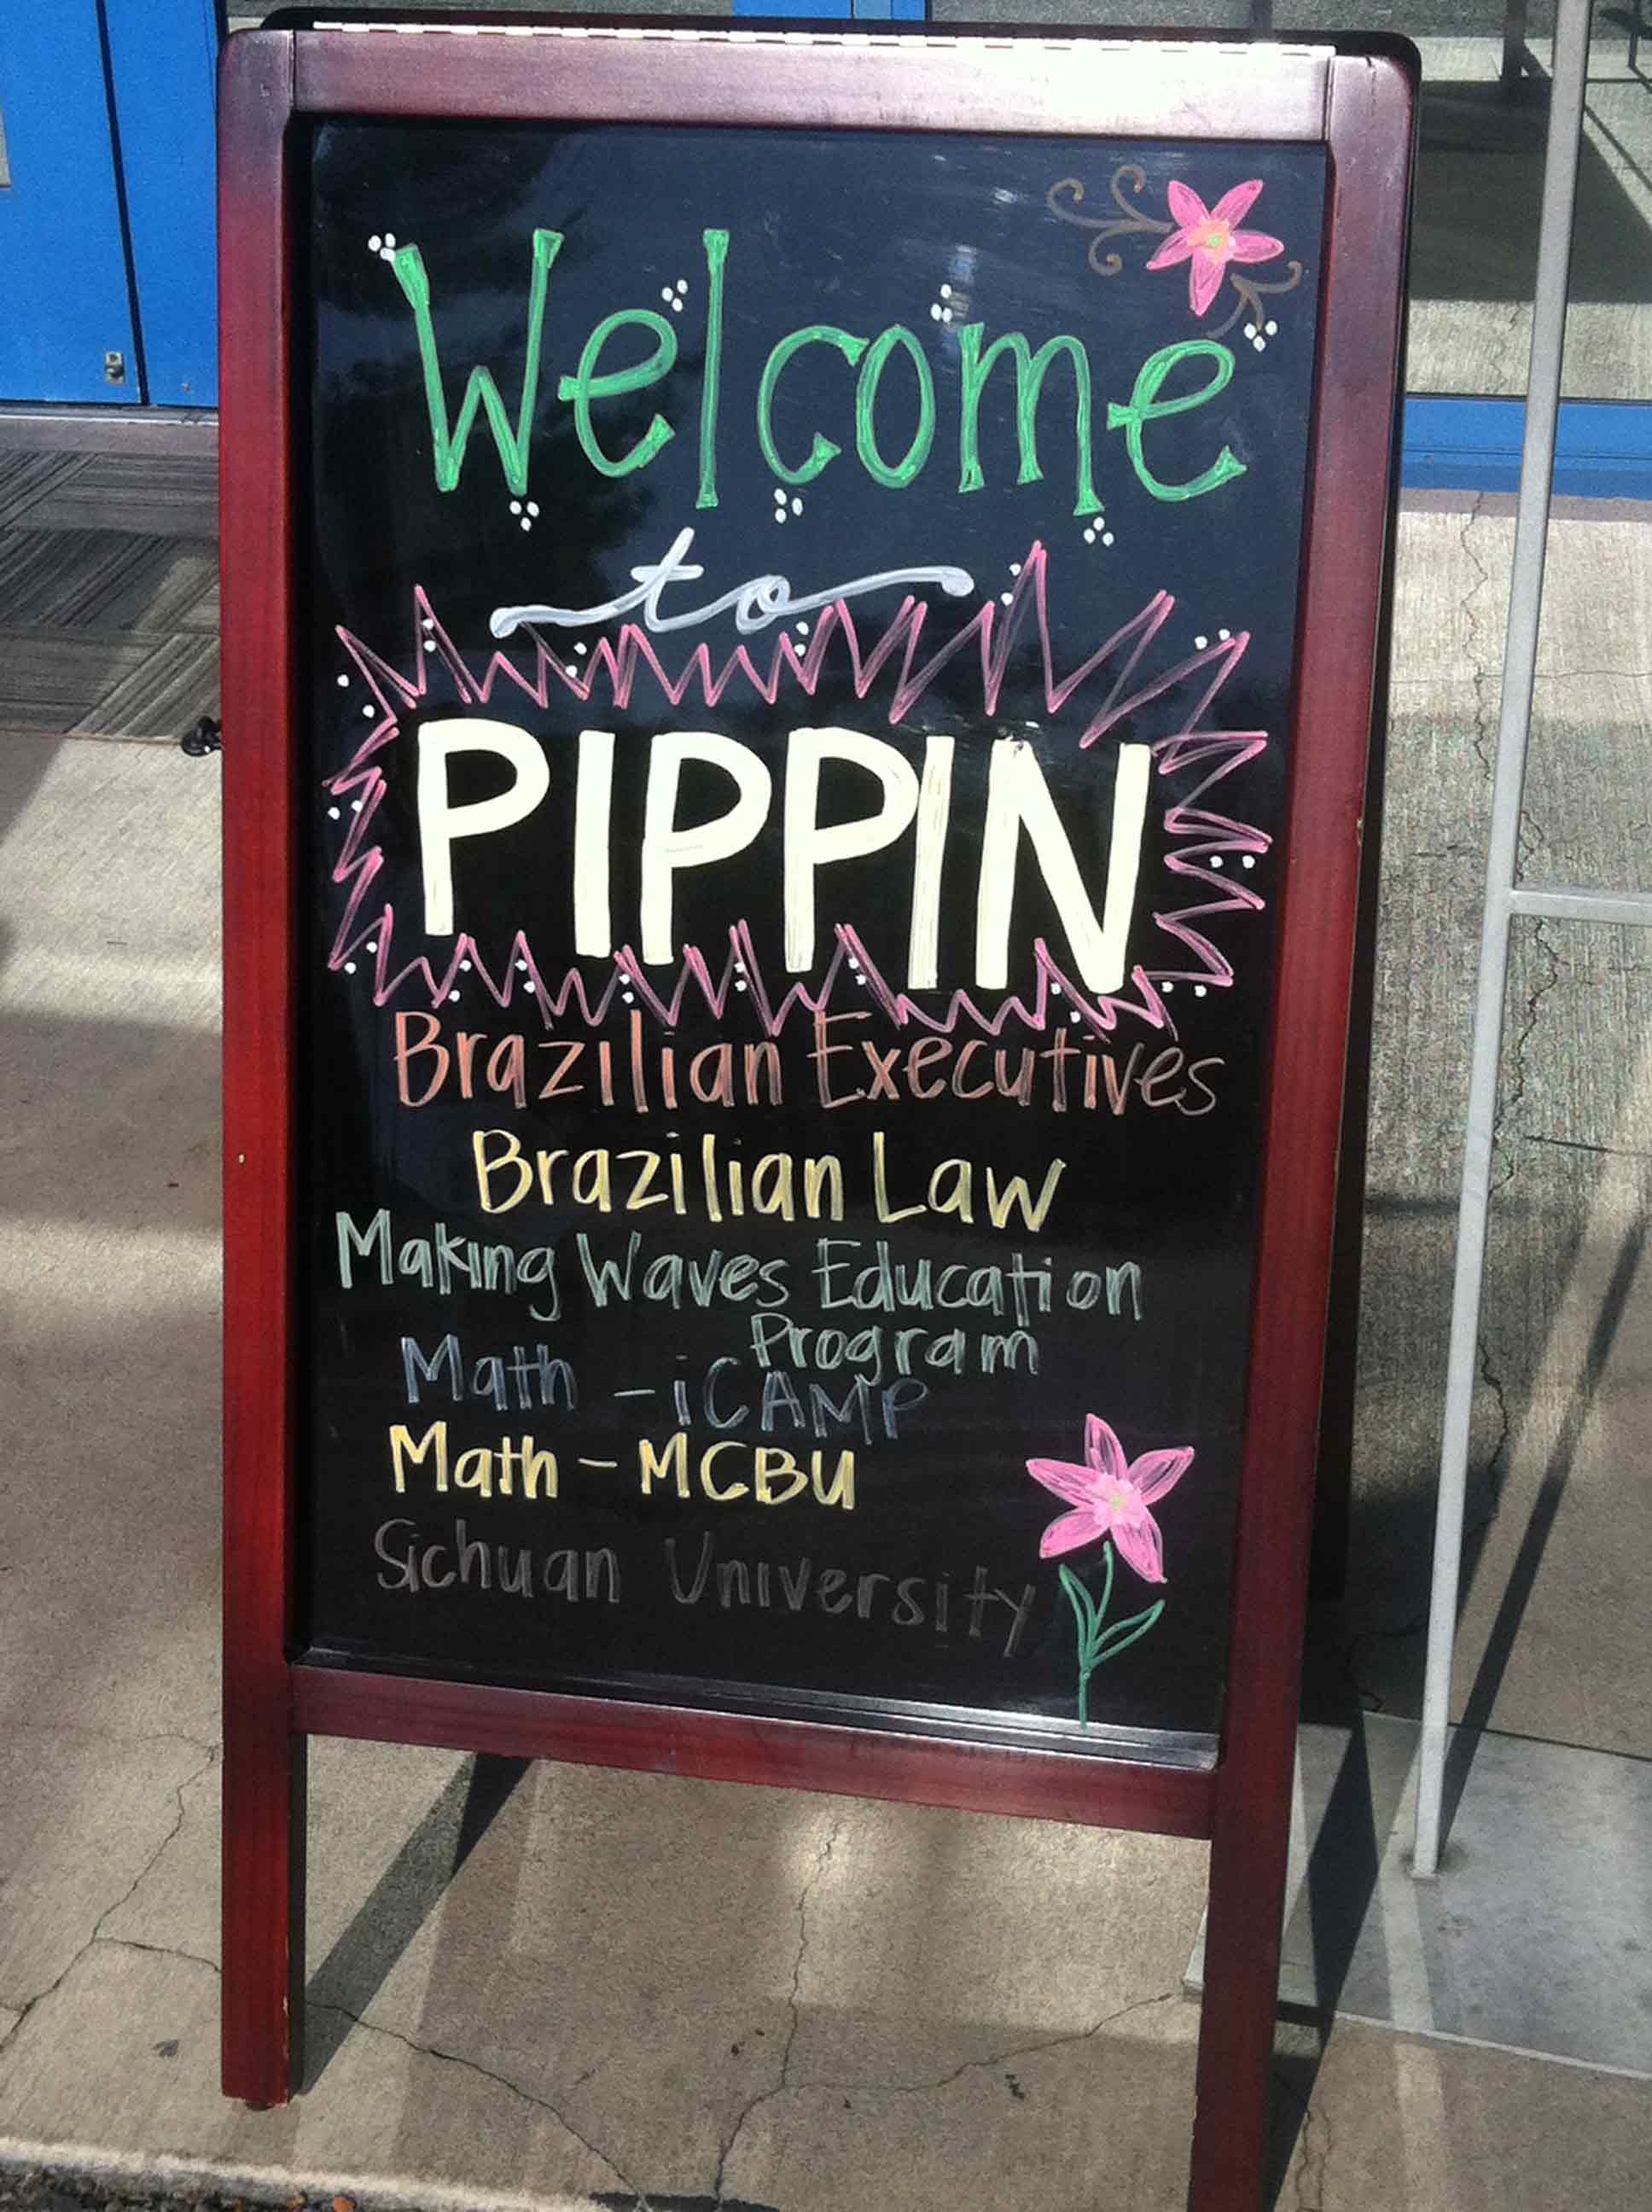 Welcome
to
PIPPIN
Brazilian Executives
Brazilian Law
Making Waves Education
Program
Math - iCAMP
Math - MCBU
Sichuan University